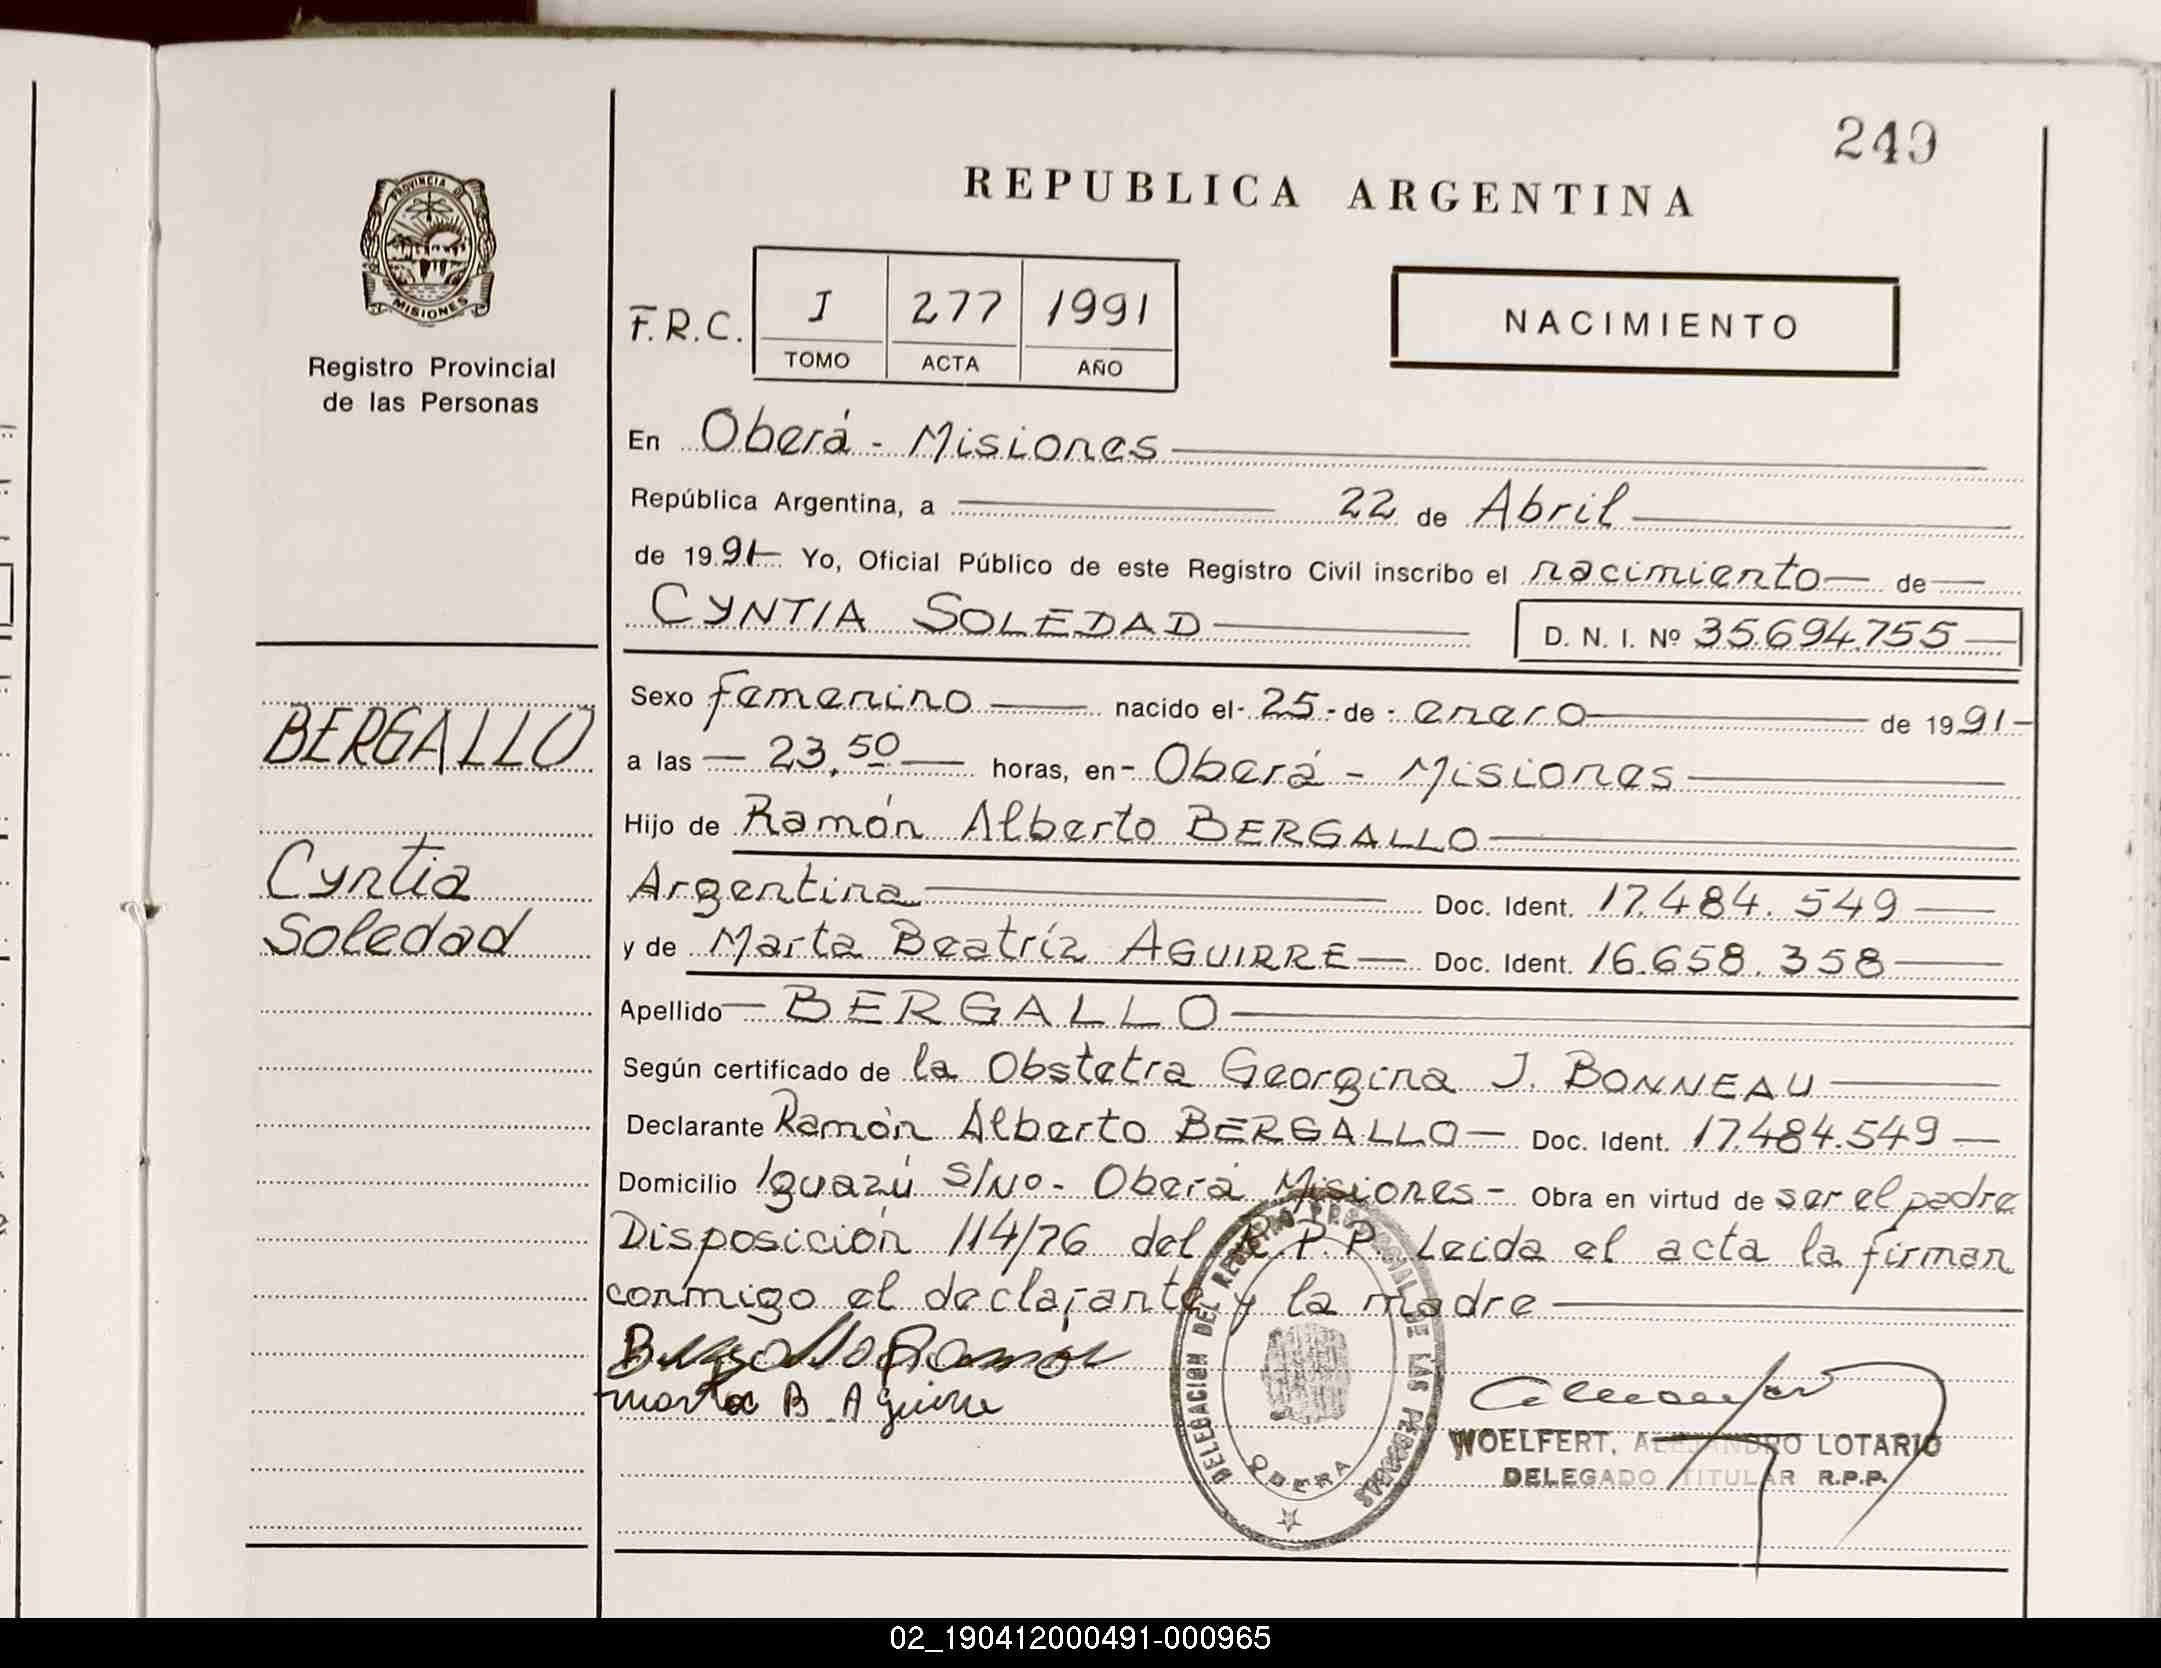 249
REPUBLICA ARGENTINA
PROVINCIA DE
MISIONES
Registro Provincial
de las Personas
F.R.C.
I 277 1991
TOMO ACTA AÑO
NACIMIENTO
En Oberá - Misiones
República Argentina, a 22 de Abril
de 1991 Yo, Oficial Público de este Registro Civil inscribo el nacimiento de
CYNTIA SOLEDAD D. N. I. Nº 35.694.755
Sexo femenino nacido el - 25 - de - enero de 1991 -
a las - 23,50 horas, en - Oberá - Misiones
Hijo de Ramón Alberto BERGALLO
Argentina Doc. Ident. 17.484.549
y de Marta Beatríz AGUIRRE Doc. Ident. 16.658.358
Apellido BERGALLO
Según certificado de la Obstetra Georgina J. BONNEAU
Declarante Ramón Alberto BERGALLO Doc. Ident. 17.484.549
Domicilio Iguazú S/Nº - Oberá Misiones - Obra en virtud de ser el padre
Disposición 114/76 del R.P.P. Leida el acta la firman
conmigo el declarante y la madre
BERGALLO
Cyntia
Soledad
Bergallo Ramon
Marta B Aguirre
DELEGACION DEL REGISTRO PROVINCIAL DE LAS PERSONAS
OBERA
WOELFERT, ALEJANDRO LOTARIO
DELEGADO TITULAR R.P.P.
02_190412000491-000965